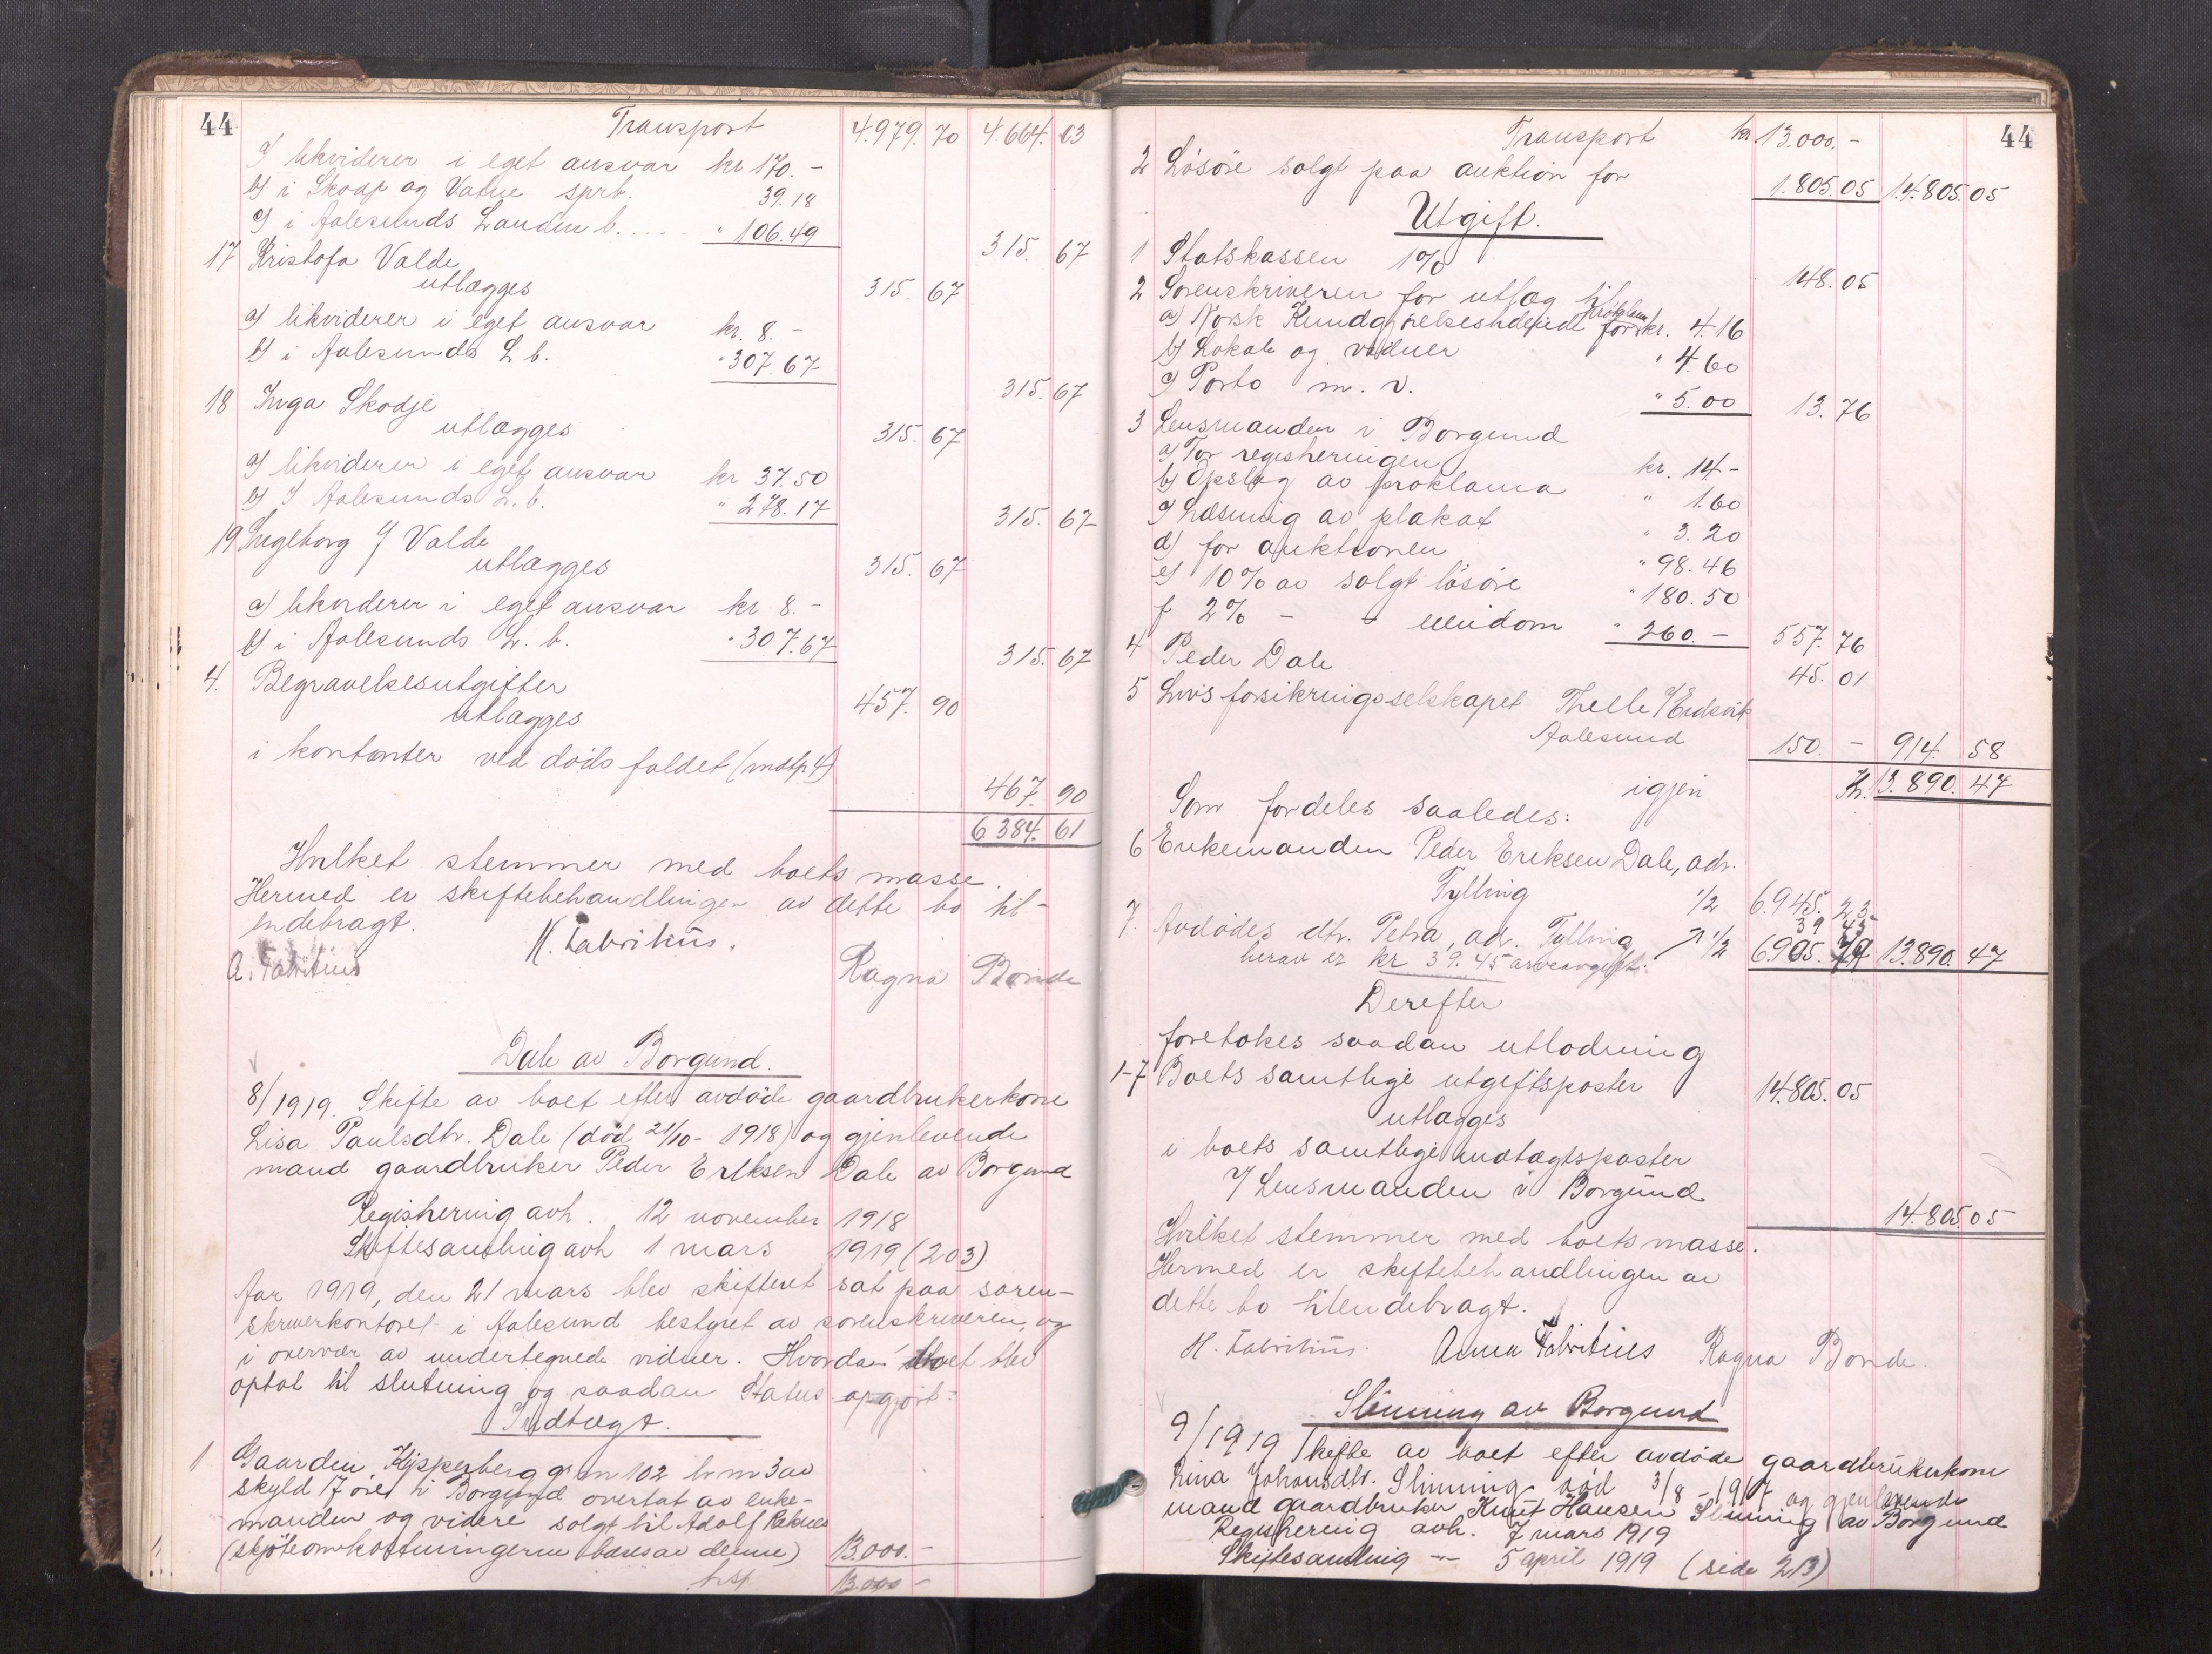 44
Transport 4.979. 70 4.664. 03
a) likviderer i eget ansvar kr 170.-
b) i Skodje og Vatne sprb. 39.18
c) i Aalesunds Landm b. .... " 106.49
315. 67
17 Kristofa Valde
utlægges 315. 67
a) likviderer i eget ansvar kr. 8.-
b) i Aalesunds L. b. " 307.67
315. 67
18 Inga Skodje
utlægges 315. 67
a) likviderer i eget ansvar kr 37.50
b) I Aalesunds L. b. " 278.17
315. 67
19 Ingeborg Valde
utlægges 315. 67
a) likviderer i eget ansvar kr 8.-
b) i Aalesunds L. b. " 307.67
315. 67
4. Begravelsesutgifter 457. 90
utlægges
i kontanter ved dødsfaldet (indtp 4)
467. 90
6384. 61
Hvilket stemmer med boets masse.
Hermed er skiftebehandlingen av dette bo til-
endebragt.
H. Fabritius.
A. Fabritius Ragna Bonde
Dale av Borgund.
8/1919. Skifte av boet efter avdøde gaardbrukerkone
Lisa Paulsdtr. Dale (død 21/10 - 1918) og gjenlevende
mand gaardbruker Peder Eriksen Dale av Borgund
Registrering avh. 12 november 1918
Skiftesamling avh 1 mars 1919 (203)
Aar 1919, den 21 mars blev skifteret sat paa soren-
skriverkontoret i Aalesund bestyret av sorenskriveren, og
i overvær av undertegnede vidner. Hvorda boet blev
optat til slutning og saadan Status opgjort:
Indtægt.
1 Gaarden Kjipperberg gr. nr 102 br nr 3 av
skyld 17 øre i Borgund overtat av enke-
manden og videre solgt til Adolf Raknes
(skjøteomkostningerne bæres av denne) 13.000.-
13.000 -
44
Transport kr 13.000.-
2 Løsøre solgt paa auktion for 1.805.05 14.805.05
Utgift.
1 Statskassen 1% 148.05
2 Sorenskriveren for utlæg til
a) Norsk Kundgjørelsestidende for proklama kr. 4.16
b) Lokale og vidner " 4.60
c) Porto m. v. " 5.00 13.76
3 Lensmanden i Borgund
a) For registreringen kr. 14.-
b) Opslag av proklama " 1.60
c) Læsning av plakat " 3.20
d) for auktionen " 98.46
e) 10% av solgt løsøre " 180.50
f 2% - - eiendom " 260.- 557.76
4 Peder Dale 45.01
5 Livsforsikringsselskapet Thelle
Aalesund 150. - 914. 58
igjen Kr. 13.890.47
Som fordeles saaledes:
6 Enkemanden Peder Eriksen Dale, adr.
Tylling 1/2 6.945. 23
39 45
7. Avdødes dtr. Petra, adr. Tylling 1/2 6.905. 79 13.890. 47
herav er kr 39.45 arveavgift.
Derefter
foretokes saadan utlodning
1-7 Boets samtlige utgiftsposter 14.805.05
utlægges
i boets samtlige indtægtsposter
v/ Lensmanden i Borgund
14.805.05
Hvilket stemmer med boets masse.
Hermed er skiftebehandlingen av
dette bo tilendebragt.
H. Fabritius. Anna Fabritius Ragna Bonde.
Slinning av Borgund
9/1919 Skifte av boet efter avdøde gaardbrukerkone
Lina Johansdtr. Slinning død 3/8 - 1917 og gjenlevende
mand gaardbruker Knut Hansen Slinning av Borgund
Registrering avh. 7 mars 1919
Skiftesamling - 5 april 1919 (side 213)